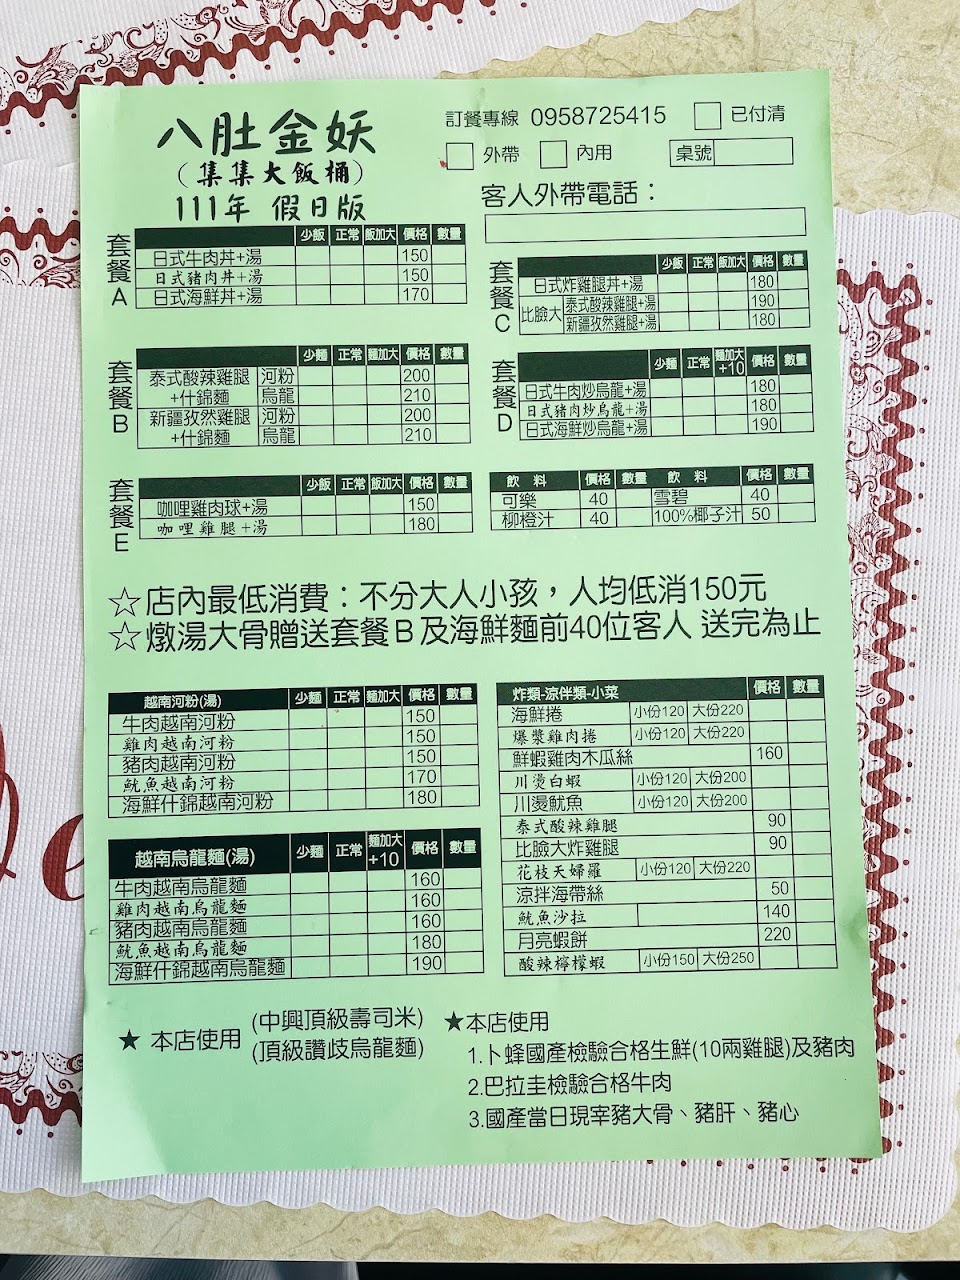 八肚金妖
(集集大飯桶)
111年 假日版
訂餐專線 0958725415 已付清
外帶 內用 桌號
客人外帶電話：
套餐A
少飯 正常 飯加大 價格 數量
日式牛肉丼+湯 150
日式豬肉丼+湯 150
日式海鮮丼+湯 170
套餐C
少飯 正常 飯加大 價格 數量
日式炸雞腿丼+湯 180
比臉大 泰式酸辣雞腿+湯 190
新疆孜然雞腿+湯 180
套餐B
少麵 正常 麵加大 價格 數量
泰式酸辣雞腿 河粉 200
+什錦麵 烏龍 210
新疆孜然雞腿 河粉 200
+什錦麵 烏龍 210
套餐D
少麵 正常 麵加大+10 價格 數量
日式牛肉炒烏龍+湯 180
日式豬肉炒烏龍+湯 180
日式海鮮炒烏龍+湯 190
套餐E
少飯 正常 飯加大 價格 數量
咖哩雞肉球+湯 150
咖哩雞腿+湯 180
飲料 價格 數量 飲料 價格 數量
可樂 40 雪碧 40
柳橙汁 40 100%椰子汁 50
☆店內最低消費：不分大人小孩，人均低消150元
☆燉湯大骨贈送套餐B及海鮮麵前40位客人 送完為止
越南河粉(湯) 少麵 正常 麵加大 價格 數量
牛肉越南河粉 150
雞肉越南河粉 150
豬肉越南河粉 150
魷魚越南河粉 170
海鮮什錦越南河粉 180
越南烏龍麵(湯) 少麵 正常 麵加大+10 價格 數量
牛肉越南烏龍麵 160
雞肉越南烏龍麵 160
豬肉越南烏龍麵 160
魷魚越南烏龍麵 180
海鮮什錦越南烏龍麵 190
炸類-涼伴類-小菜 價格 數量
海鮮捲 小份120 大份220
爆漿雞肉捲 小份120 大份220
鮮蝦雞肉木瓜絲 160
川燙白蝦 小份120 大份200
川燙魷魚 小份120 大份200
泰式酸辣雞腿 90
比臉大炸雞腿 90
花枝天婦羅 小份120 大份220
涼拌海帶絲 50
魷魚沙拉 140
月亮蝦餅 220
酸辣檸檬蝦 小份150 大份250
★ 本店使用 (中興頂級壽司米)
(頂級讚歧烏龍麵)
★本店使用
1.卜蜂國產檢驗合格生鮮(10兩雞腿)及豬肉
2.巴拉圭檢驗合格牛肉
3.國產當日現宰豬大骨、豬肝、豬心